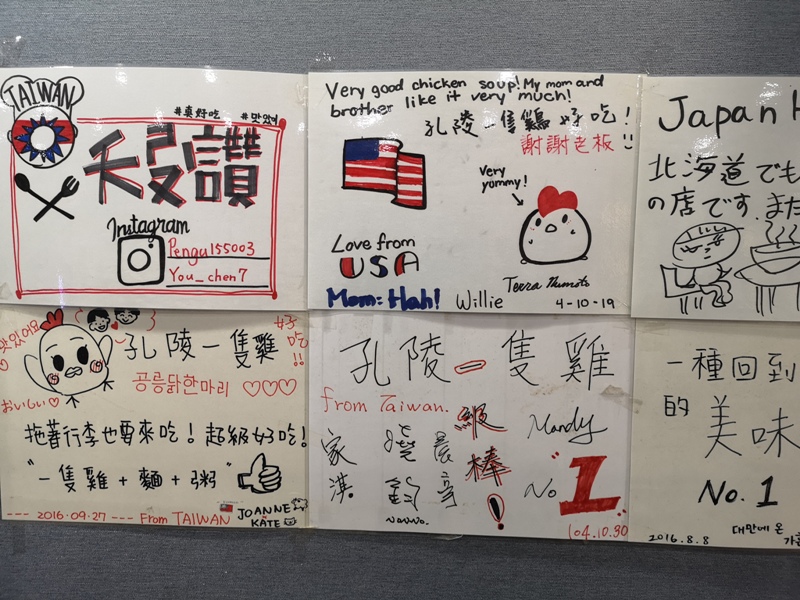 TAIWAN
#真好吃 #맛있어
天殳讚
Instagram
Pengu155003
You_chen7
Very good chicken soup! My mom and
brother like it very much!
孔陵一隻鷄 好吃!
謝謝老板
Very
yummy!
Love from
USA
Mom: Hah!
Willie
4-10-19
Japan
北海道でも
の店です.また
맛있어요
孔陵一隻雞
好吃!!
공릉닭한마리 ♡♡♡
おいしい♡
拖著行李也要來吃!超級好吃!
"一隻雞+麵+粥"
--- 2016.09.27 --- From TAIWAN
JOANNE
KATE
孔陵一隻雞
from Taiwan.
級棒!
Mandy
家
淇
No. 1
104.10.30
一種回到
的美味
No. 1
2016.8.8
대만에 온